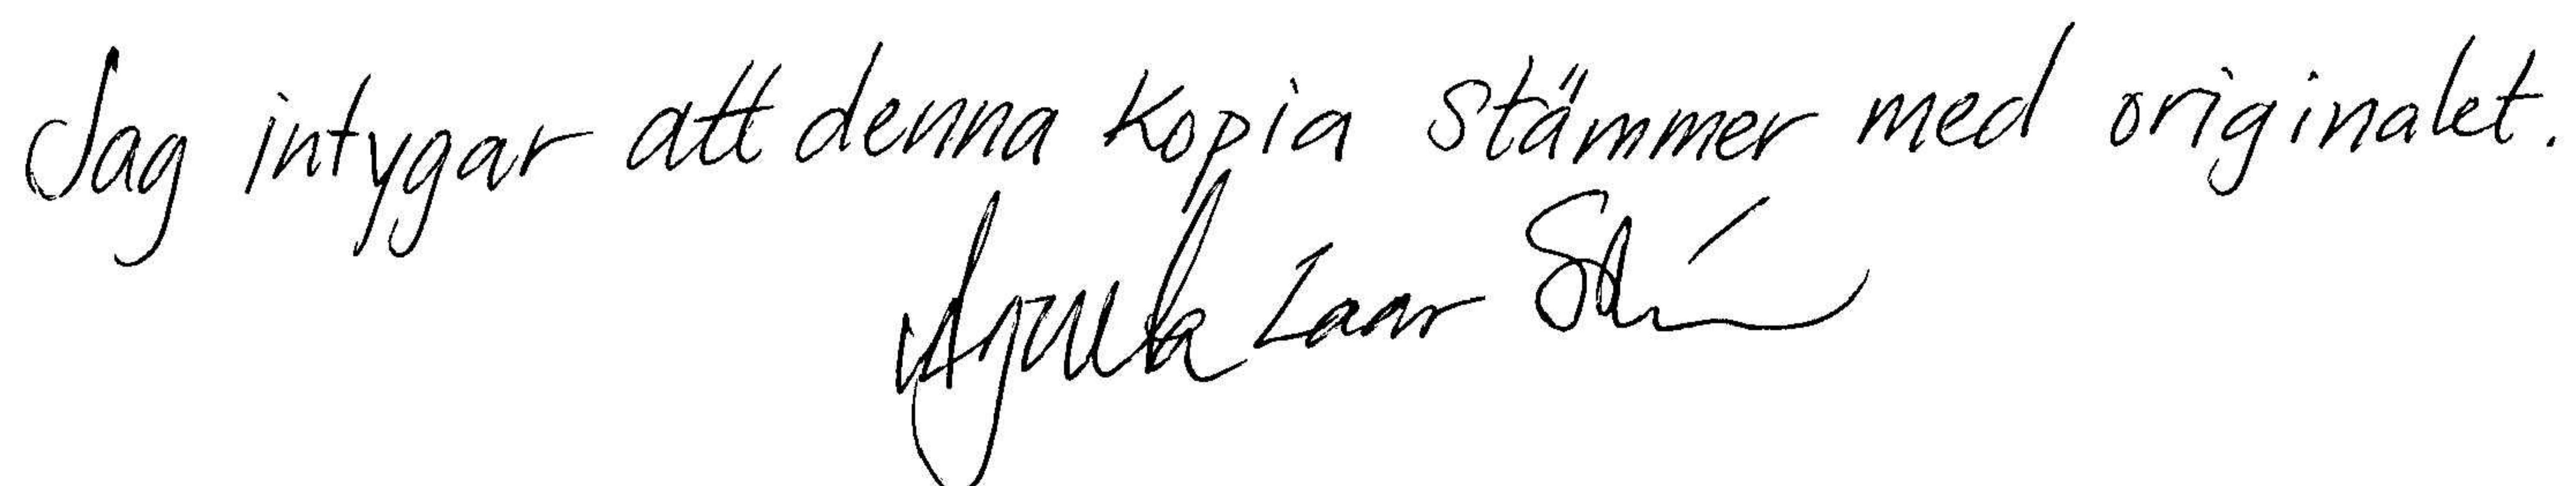 Jag intygar att denna kopia stämmer med originalet.
Laar